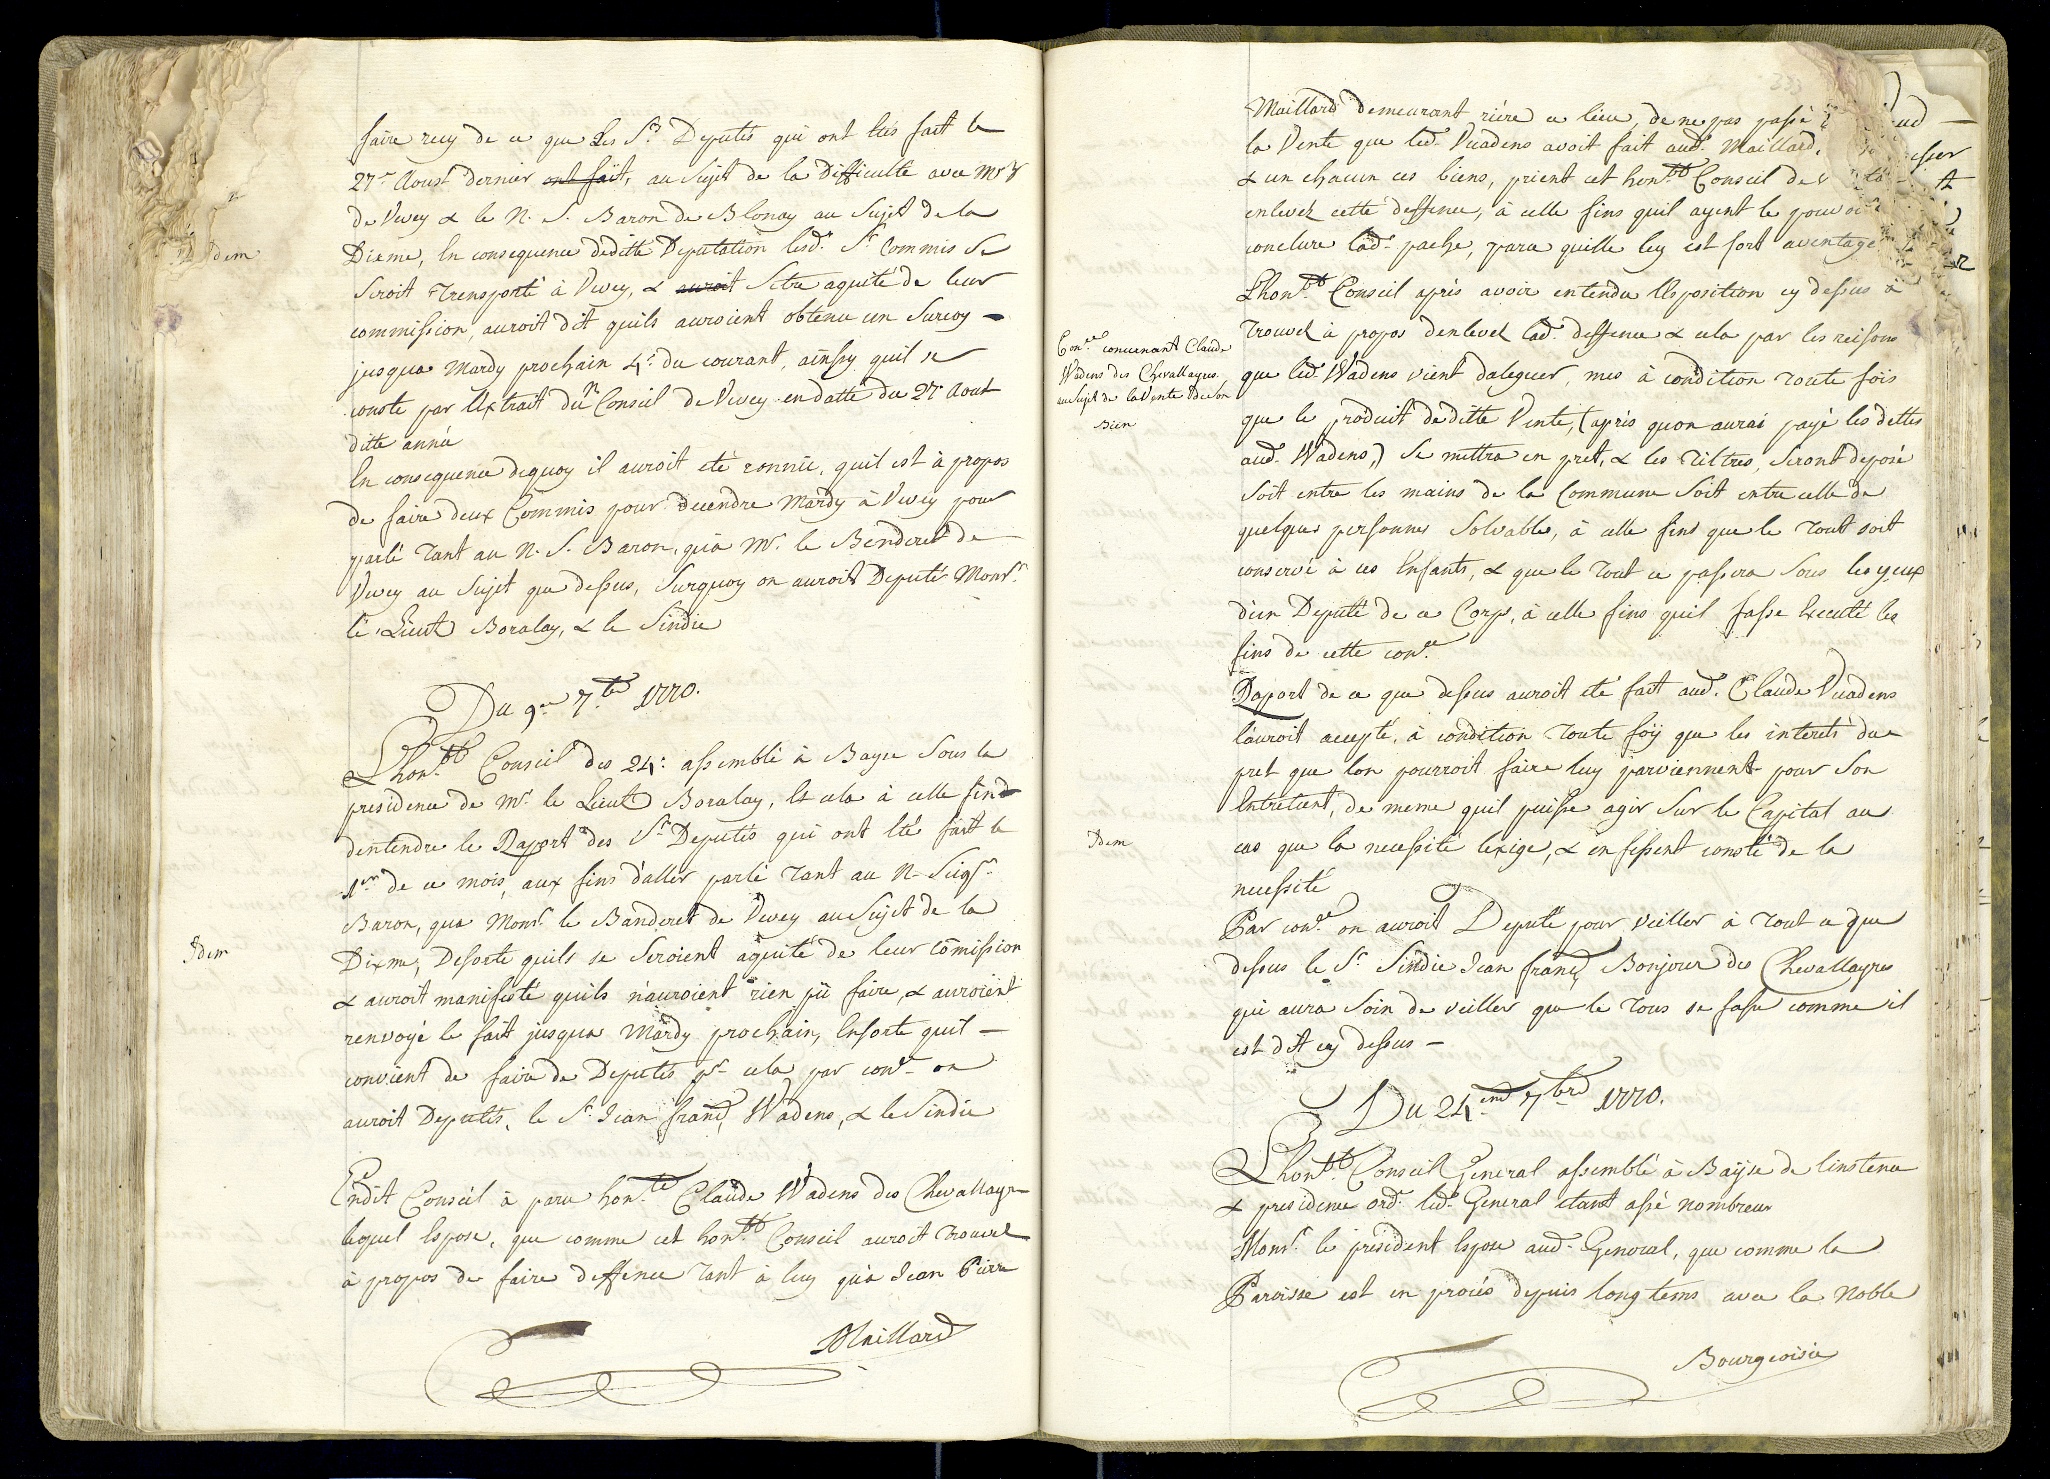 faire recy de ce que Les Srs Deputés qui ont étés fait le
27e Aoust dernier ont fait, au Sujet de la Difficulté avec Mrs
de Vevey & le N. S. Baron de Blonay au Sujet de la
Idem
Dixme, En consequence de ditte Deputation lesd. Srs Commis Se
Seroit Transporté à Vevey, & auroit S'etre aquité de leur
commission, auroit dit quils auroient obtenu un Surcoy
jusqua Mardy prochain 4e du courant, ainsy quil se
conste par l'Extrait du Conseil de Vevey en datte du 27 Aout
ditte année
En consequence dequoy il auroit eté connüe, quil est à propos
de faire deux Commis pour decendre Mardy à Vevey pour
parlé Tant au N. S. Baron, qu'à Mr. le Benderet de
Vevey au Sujet que dessus, Surquoy on auroit Deputés Monsr.
le Lieut Boralay, & le Sindic
Du 9e 7bre 1770.
Lhonble Conseil des 24: assemblé à Bayse Sous la
presidence de Mr. le Lieut Boralay, Et cela à celle find
dentendre le Raport des Srs Deputés qui ont Eté fait le
1er de ce mois, aux fins d'aller parlé Tant au N. Seigr.
Baron, qua Monsr. le Banderet de Vevey au Sujet de la
Idem
Dixme, Desorte quils se Seroient aquité de leur comission
& auroit manifesté quils n'auroient rien pü faire, & auroient
renvoyé le fait jusqua Mardy prochain, Ensorte quil
convient de faire de Deputés pr. cela par conce on
auroit Deputés, le Sr. Jean franç Wadens, & le Sindic
Endit Conseil à paru honte Claude Wadens des Chevallayre
lequel Expose, que comme cet honble Conseil auroit Trouvel
à propos de faire deffence Tant à luy qu'à Jean Pierre
Maillard
Maillard demeurant riére ce lieu, de ne pas passé
la Vente que led. Vuadens avoit fait aud. Maillard,
& un chacun ces biens, prient cet honble Conseil de
enlevéz cette deffence, à celle fins quil ayent le pouvoi
conclure lad. pache, parce quelle luy est fort aventage
Lhonble Conseil aprés avoir entendu l'Exposition cy dessus à
Trouvel à propos d'enlevel lad. deffence & cela par les reisons
Conce concernant Claude
Wadens des Chevallayres
au Sujet de la Vente de Son
Bien
que led. Wadens vient daleguer, mes à condition Toute fois
que le produit de ditte Vente, (aprés quon aurai payé les dettes
aud. Wadens,) Se mettra en pret, & les Tiltres, Seront deposé
Soit entre les mains de la Commune Soit entre celle de
quelques personnes Solvable, à celle fins que le Tout soit
conservé à ces Enfants, & que le Tout ce passera Sous les yeux
d'un Deputé de ce Corps, à celle fins quil fasse Executé les
fins de cette conce
Raport de ce que dessus auroit eté fait aud. Claude Vuadens
lauroit accepté, à condition Toute foÿ que les interets du
pret que lon pourroit faire luy parviennent pour Son
Entretient, de meme quil puisse agir Sur le Capital au
Idem
cas que la necessité lexige, & en fessent consté de la
necessité
Par conce on auroit Deputé pour Veiller à Tout ce que
dessus le Sr. Sindic Jean franç Bonjour des Chevallayres
qui aura Soin de veiller que le Tous se fasse comme il
est dit cy dessus
Du 24end 7bre 1770.
Lhonble Conseil General assemblé à Baÿse de linstence
& presidence ord. led. General etant assé nombreux
Monsr. le president Expose aud. General, que comme la
Paroisse est en procés depuis longtems avec la Noble
Bourgeoisie